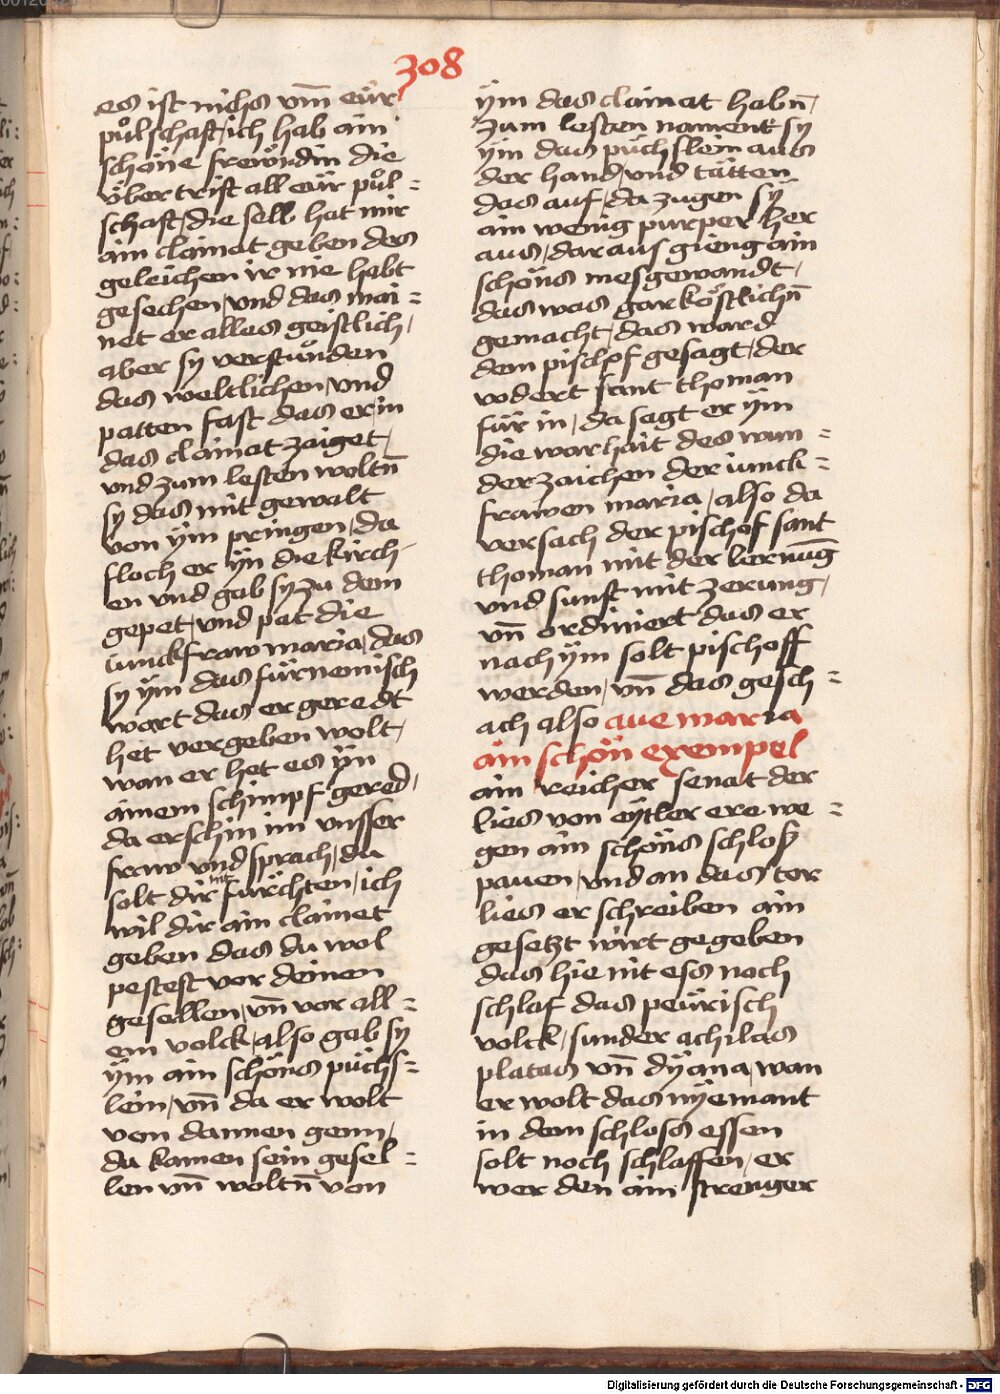 308
es ist nichs vm̄ eür
pu̇lschaft / ich hab ain
schöne frewndin die
übertrift all eür pu̇l =
schaft / die selb hat mir
ain clainat geben des
geleichen ir nie habt
gesechen / vnd das mai =
net er alles geistlich /
aber sy verstuonden
das weltlichen / vnd
patten fast das er in
das clainat zaiget /
vnd zum lesten woltn̄
sy das mit gewalt
von ÿm pringen / da
floch er ÿn die kirch
en vnd gab sy zu dem
gepet / vnd pat die
iunckfraw maria / das
sy ÿm das fürnemisch
wort das er geredt
het vergeben wolt /
wan er het es ÿn
ainem schimpf gered /
da erschin im vnsser
fraw vnd sprach / du
solt dir nit fürchten / ich
wil dir ain clainet
geben das du wol
pestest vor deinen
gesellen / vn̄ vor all =
em volck / also gab sy
ÿm ain schöns püchs =
lein / vn̄ da er wolt
von dannen genn /
da kamen sein gesel =
len vn̄ woltn̄ von
ÿm das clainat habn̄ /
zum lesten nament sy
ÿm das püchslein aus
der hand / vnd tätten
das auf / da zugen sy
ain wenig purper her
aus / daraus gieng ain
schöns mesgewandt /
das was gar köstlichn̄
gemacht / das ward
dem pischof gesagt / der
vodert sant thoman
für in / da sagt er ÿm
die warhait des wun =
derzaichen der iunck =
frawen maria / also da
versach der pischof sant
thoman mit der lernūg
vnd sunst mit zerung /
vn̄ ordiniert das er
nach ÿm solt pischoff
werden / vn̄ das gesch =
ach also aue maria
ain schön exempel
ain reicher senat der
lies von eÿtler ere we =
gen ain schöns schloß
pauen / vnd an das tor
lies er schreiben ain
gesetzt wirt gegeben
das hie nit ess noch
schlaf das peürisch
volck / sunder achilas
platas vn̄ dÿana / wan
er wolt das nÿemant
in dem schloss essen
solt noch schlaffen / er
wer den ain strenger
Digitalisierung gefördert durch die Deutsche Forschungsgemeinschaft - DFG